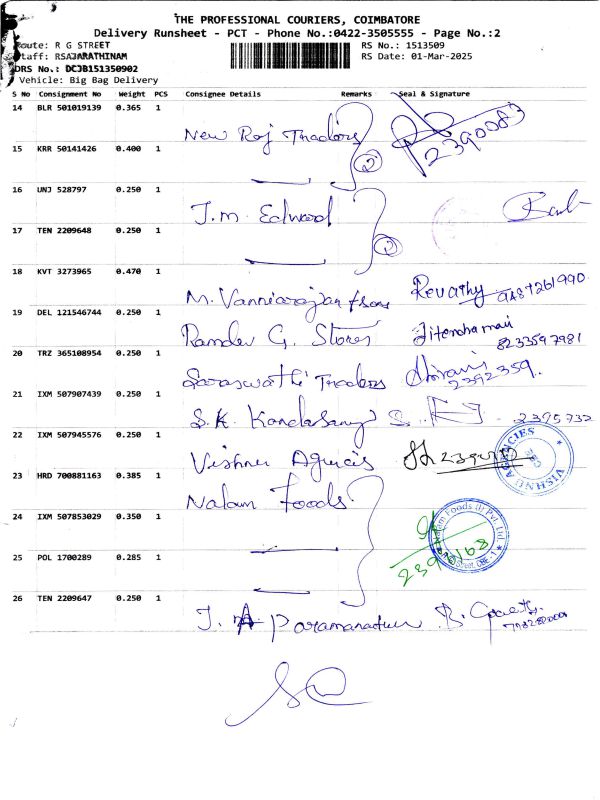 THE PROFESSIONAL COURIERS, COIMBATORE
Delivery Runsheet - PCT - Phone No.:0422-3505555 - Page No.:2
Route: R G STREET
RS No.: 1513509
Staff: RSAJARATHINAM
RS Date: 01-Mar-2025
DRS No.: DCJB151350902
Vehicle: Big Bag Delivery
S No Consignment No Weight PCS Consignee Details Remarks Seal & Signature
14 BLR 501019139 0.365 1
New Raj Traders 2 2390083
15 KRR 50141426 0.400 1
16 UNJ 528797 0.250 1
J.M. Edward 2
17 TEN 2209648 0.250 1
18 KVT 3273965 0.470 1
M. Vanniarajan & Sons Revathy 9487261990
19 DEL 121546744 0.250 1
Ramdev G. Stores Jitendra 8233597981
20 TRZ 365108954 0.250 1
Saraswathi Traders 2392359
21 IXM 507907439 0.250 1
S.K. Kandasamy 2395732
22 IXM 507945576 0.250 1
Vishnu Agencies
VISHNU AGENCIES
23 HRD 700881163 0.385 1
Nalam Foods
24 IXM 507853029 0.350 1
Nalam Foods (I) Pvt. Ltd.
25 POL 1700289 0.285 1
26 TEN 2209647 0.250 1